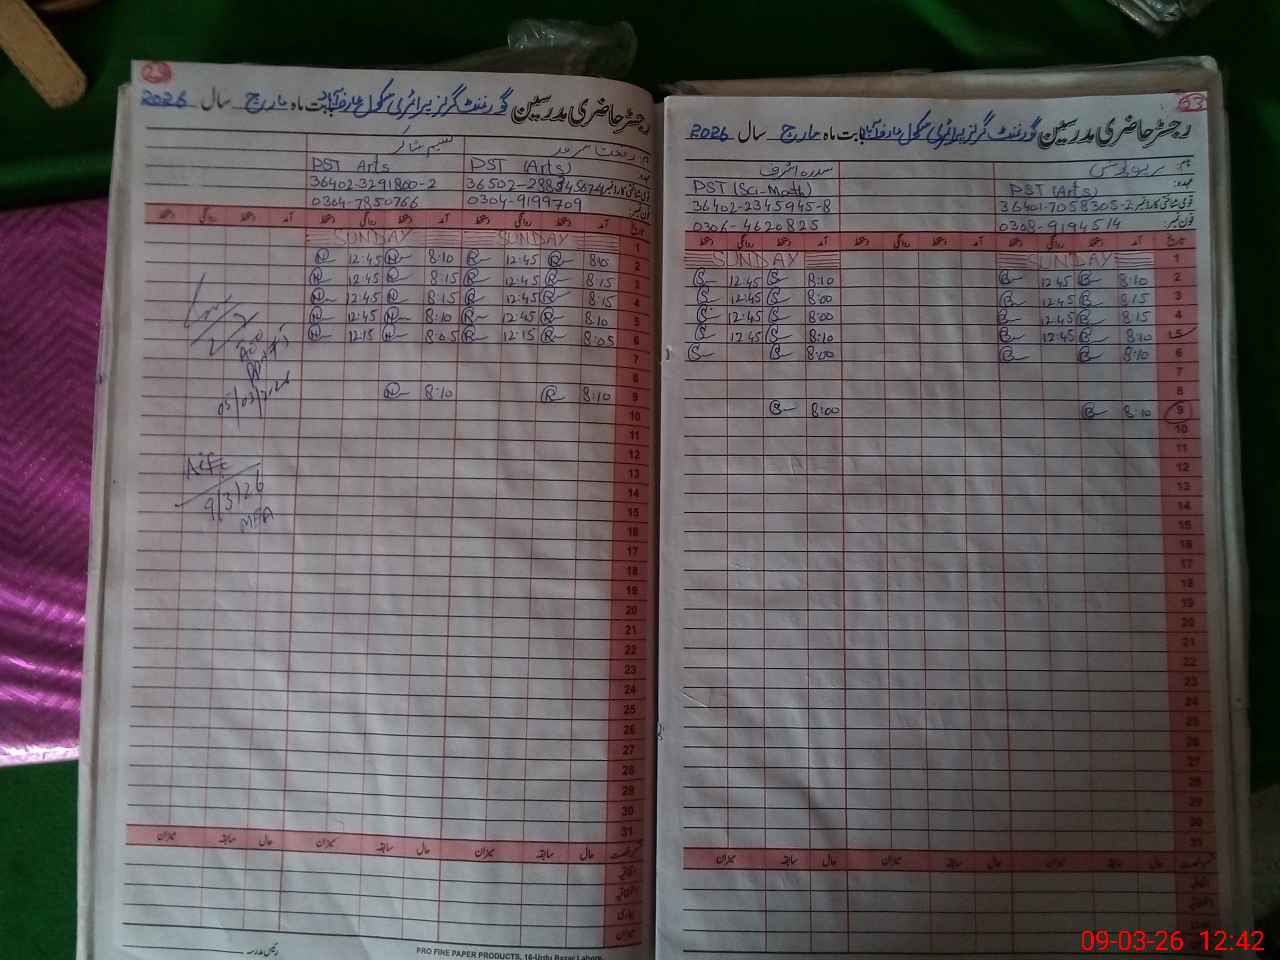 23
رجسٹر حاضری مدرسین گورنمنٹ گرلز پرائمری سکول عارف آباد بابت ماہ مارچ سال 2026
نسیم شاکر
PST Arts PST (Arts)
36402-3291800-2
0304-7850766 0304-9199709
دستخط روانگی دستخط آمد دستخط روانگی دستخط آمد تاریخ
SUNDAY SUNDAY 1
12:45 8:10 12:45 8:10 2
12:45 8:15 12:45 8:15 3
12:45 8:15 12:45 8:15 4
12:45 8:10 12:45 8:10 5
12:15 8:05 12:15 8:05 6
7
8
8:10 8:10 9
10
11
12
13
14
15
16
17
18
19
20
21
22
23
24
25
26
27
28
29
30
31
05/03/2026
9/3/26
میزان سابقہ حال میزان سابقہ حال میزان سابقہ حال
اتفاقیہ
استحقاقیہ
بیماری
میزان
رئیس مدرسہ
PRO FINE PAPER PRODUCTS, 16-Urdu Bazar Lahore.
23
رجسٹر حاضری مدرسین گورنمنٹ گرلز پرائمری سکول عارف آباد بابت ماہ مارچ سال 2026
نام: سدرہ اشرف
عہدہ: PST (Sci-Math) PST (Arts)
قومی شناختی کارڈ نمبر: 36402-2345945-8 36401-7058305-2
فون نمبر: 0306-4620825 0308-9194514
دستخط روانگی دستخط آمد دستخط روانگی دستخط آمد دستخط روانگی دستخط آمد تاریخ
SUNDAY SUNDAY 1
12:45 8:10 12:45 8:10 2
12:45 8:00 12:45 8:15 3
12:45 8:00 12:45 8:15 4
12:45 8:10 12:45 8:10 5
8:00 8:10 6
7
8
8:00 8:10 9
10
11
12
13
14
15
16
17
18
19
20
21
22
23
24
25
26
27
28
29
30
31
میزان سابقہ حال میزان سابقہ حال میزان سابقہ حال
اتفاقیہ
استحقاقیہ
09-03-26 12:42